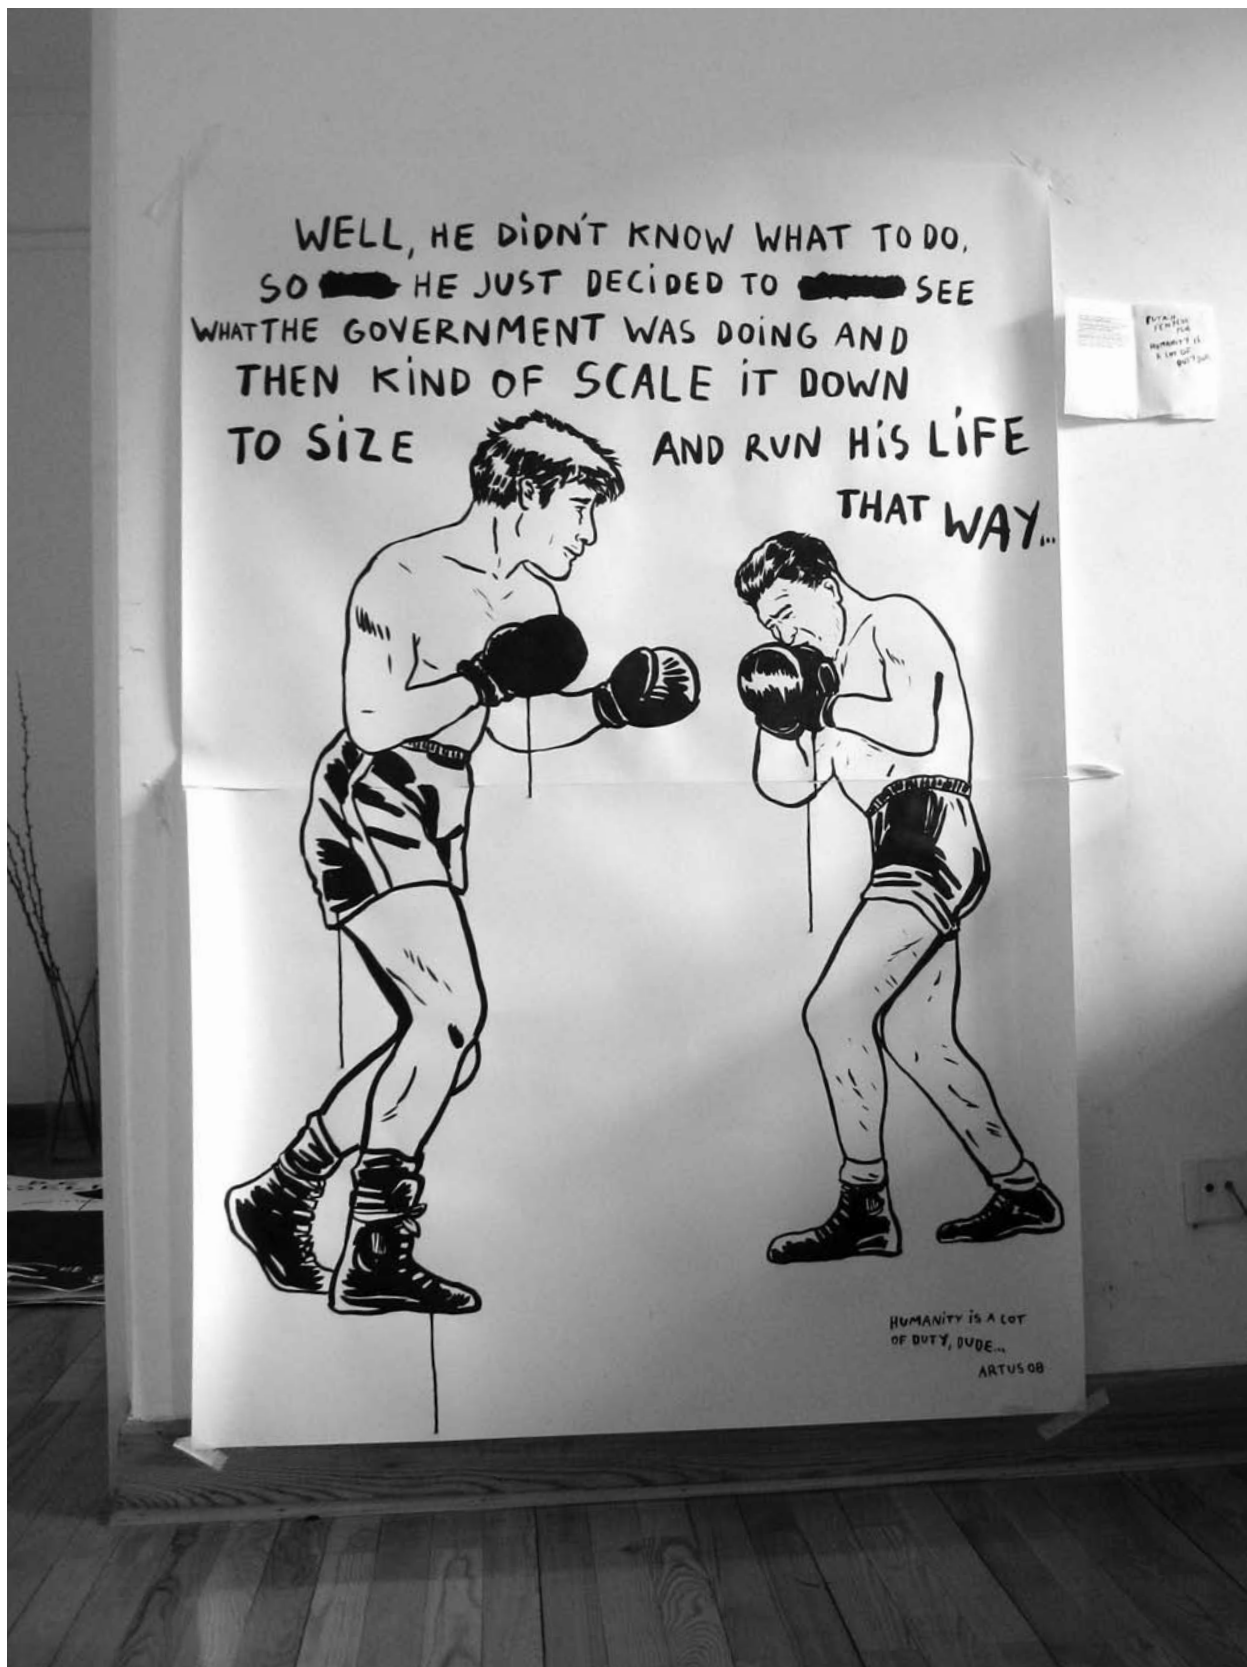 WELL, HE DIDN'T KNOW WHAT TO DO,
SO HE JUST DECIDED TO SEE
WHAT THE GOVERNMENT WAS DOING AND
THEN KIND OF SCALE IT DOWN
TO SIZE AND RUN HIS LIFE
THAT WAY...
HUMANITY IS
A LOT OF
DUTY DUDE
HUMANITY IS A LOT
OF DUTY, DUDE...
ARTUS 08